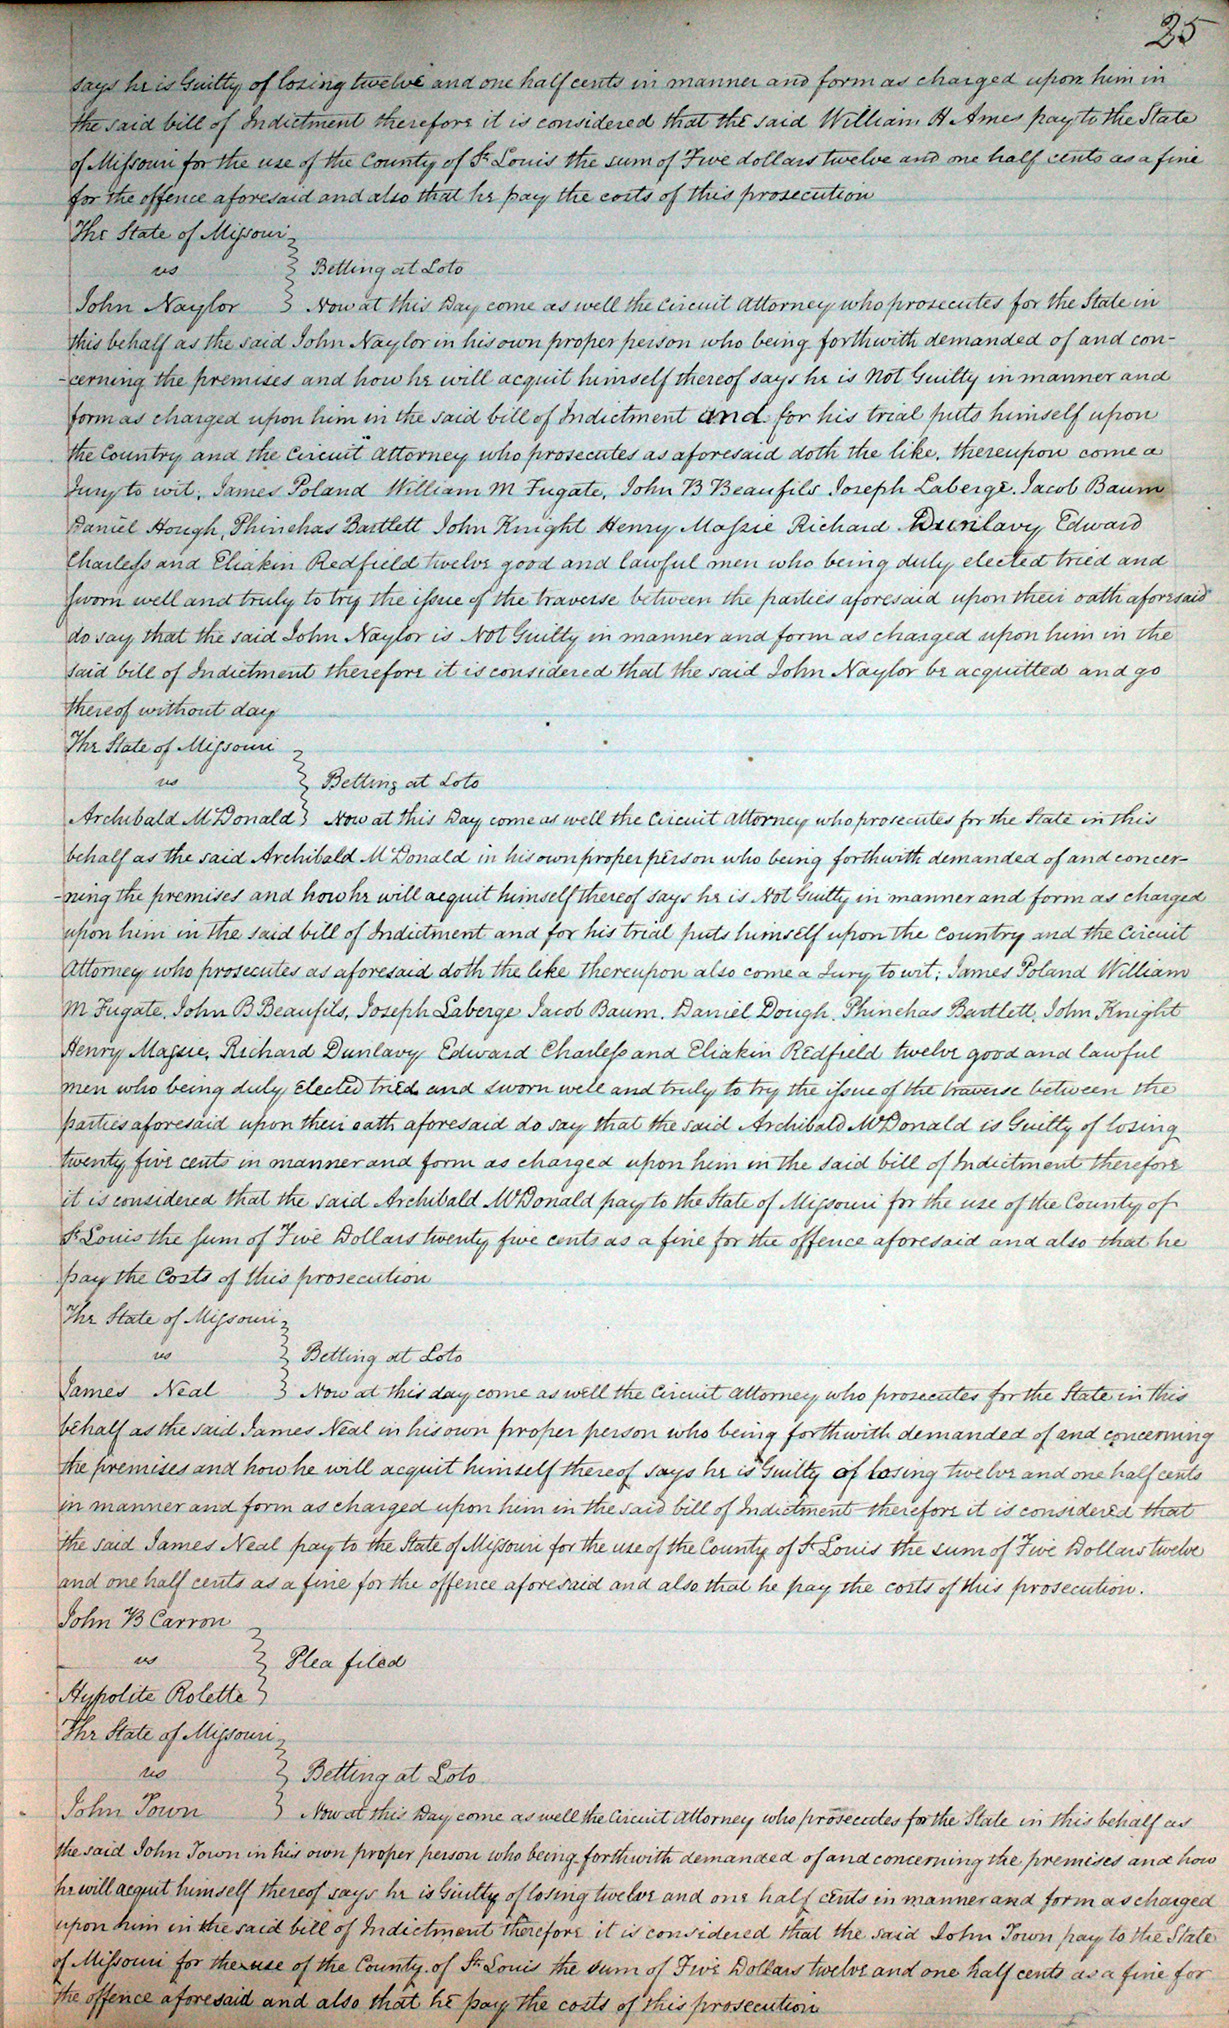 25
says he is Guilty of losing twelve and one half cents in manner and form as charged upon him in
the said bill of Indictment therefore it is considered that the said William H Ames pay to the State
of Missouri for the use of the County of St Louis the sum of Five dollars twelve and one half cents as a fine
for the offence aforesaid and also that he pay the costs of this prosecution
The State of Missouri
vs } Betting at Loto
John Naylor } Now at this Day come as well the Circuit Attorney who prosecutes for the State in
this behalf as the said John Naylor in his own proper person who being forthwith demanded of and con-
-cerning the premises and how he will acquit himself thereof says he is Not Guilty in manner and
form as charged upon him in the said bill of Indictment and for his trial puts himself upon
the Country and the Circuit Attorney who prosecutes as aforesaid doth the like, thereupon come a
Jury to wit, James Poland William M Fugate, John B Beaufils Joseph Laberge. Jacob Baum
Daniel Hough, Phinehas Bartlett John Knight Henry Massie Richard Dunlavy Edward
Charless and Eliakin Redfield twelve good and lawful men who being duly elected tried and
sworn well and truly to try the issue of the traverse between the parties aforesaid upon their oath aforesaid
do say that the said John Naylor is Not Guilty in manner and form as charged upon him in the
said bill of Indictment therefore it is considered that the said John Naylor be acquitted and go
thereof without day
The State of Missouri
vs } Betting at Loto
Archibald McDonald } Now at this Day come as well the Circuit Attorney who prosecutes for the State in this
behalf as the said Archibald McDonald in his own proper person who being forthwith demanded of and concer-
-ning the premises and how he will acquit himself thereof says he is Not Guilty in manner and form as charged
upon him in the said bill of Indictment and for his trial puts himself upon the Country and the Circuit
Attorney who prosecutes as aforesaid doth the like thereupon also come a Jury to wit; James Poland William
M Fugate, John B Beaufils, Joseph Laberge Jacob Baum. Daniel Dough, Phinehas Bartlett, John Knight
Henry Massie, Richard Dunlavy Edward Charless and Eliakin Redfield twelve good and lawful
men who being duly elected tried and sworn well and truly to try the issue of the traverse between the
parties aforesaid upon their oath aforesaid do say that the said Archibald McDonald is Guilty of losing
twenty five cents in manner and form as charged upon him in the said bill of Indictment therefore
it is considered that the said Archibald McDonald pay to the State of Missouri for the use of the County of
St Louis the sum of Five Dollars twenty five cents as a fine for the offence aforesaid and also that he
pay the Costs of this prosecution
The State of Missouri
vs } Betting at Loto
James Neal } Now at this day come as well the Circuit Attorney who prosecutes for the State in this
behalf as the said James Neal in his own proper person who being forthwith demanded of and concerning
the premises and how he will acquit himself thereof says he is Guilty of losing twelve and one half cents
in manner and form as charged upon him in the said bill of Indictment therefore it is considered that
the said James Neal pay to the State of Missouri for the use of the County of St Louis the sum of Five Dollars twelve
and one half cents as a fine for the offence aforesaid and also that he pay the costs of this prosecution.
John B Carron
vs } Plea filed
Hypolite Rolette }
The State of Missouri
vs } Betting at Loto
John Town } Now at this Day come as well the Circuit Attorney who prosecutes for the State in this behalf as
the said John Town in his own proper person who being forthwith demanded of and concerning the premises and how
he will acquit himself thereof says he is Guilty of losing twelve and one half cents in manner and form as charged
upon him in the said bill of Indictment therefore it is considered that the said John Town pay to the State
of Missouri for the use of the County of St Louis the sum of Five Dollars twelve and one half cents as a fine for
the offence aforesaid and also that he pay the costs of this prosecution